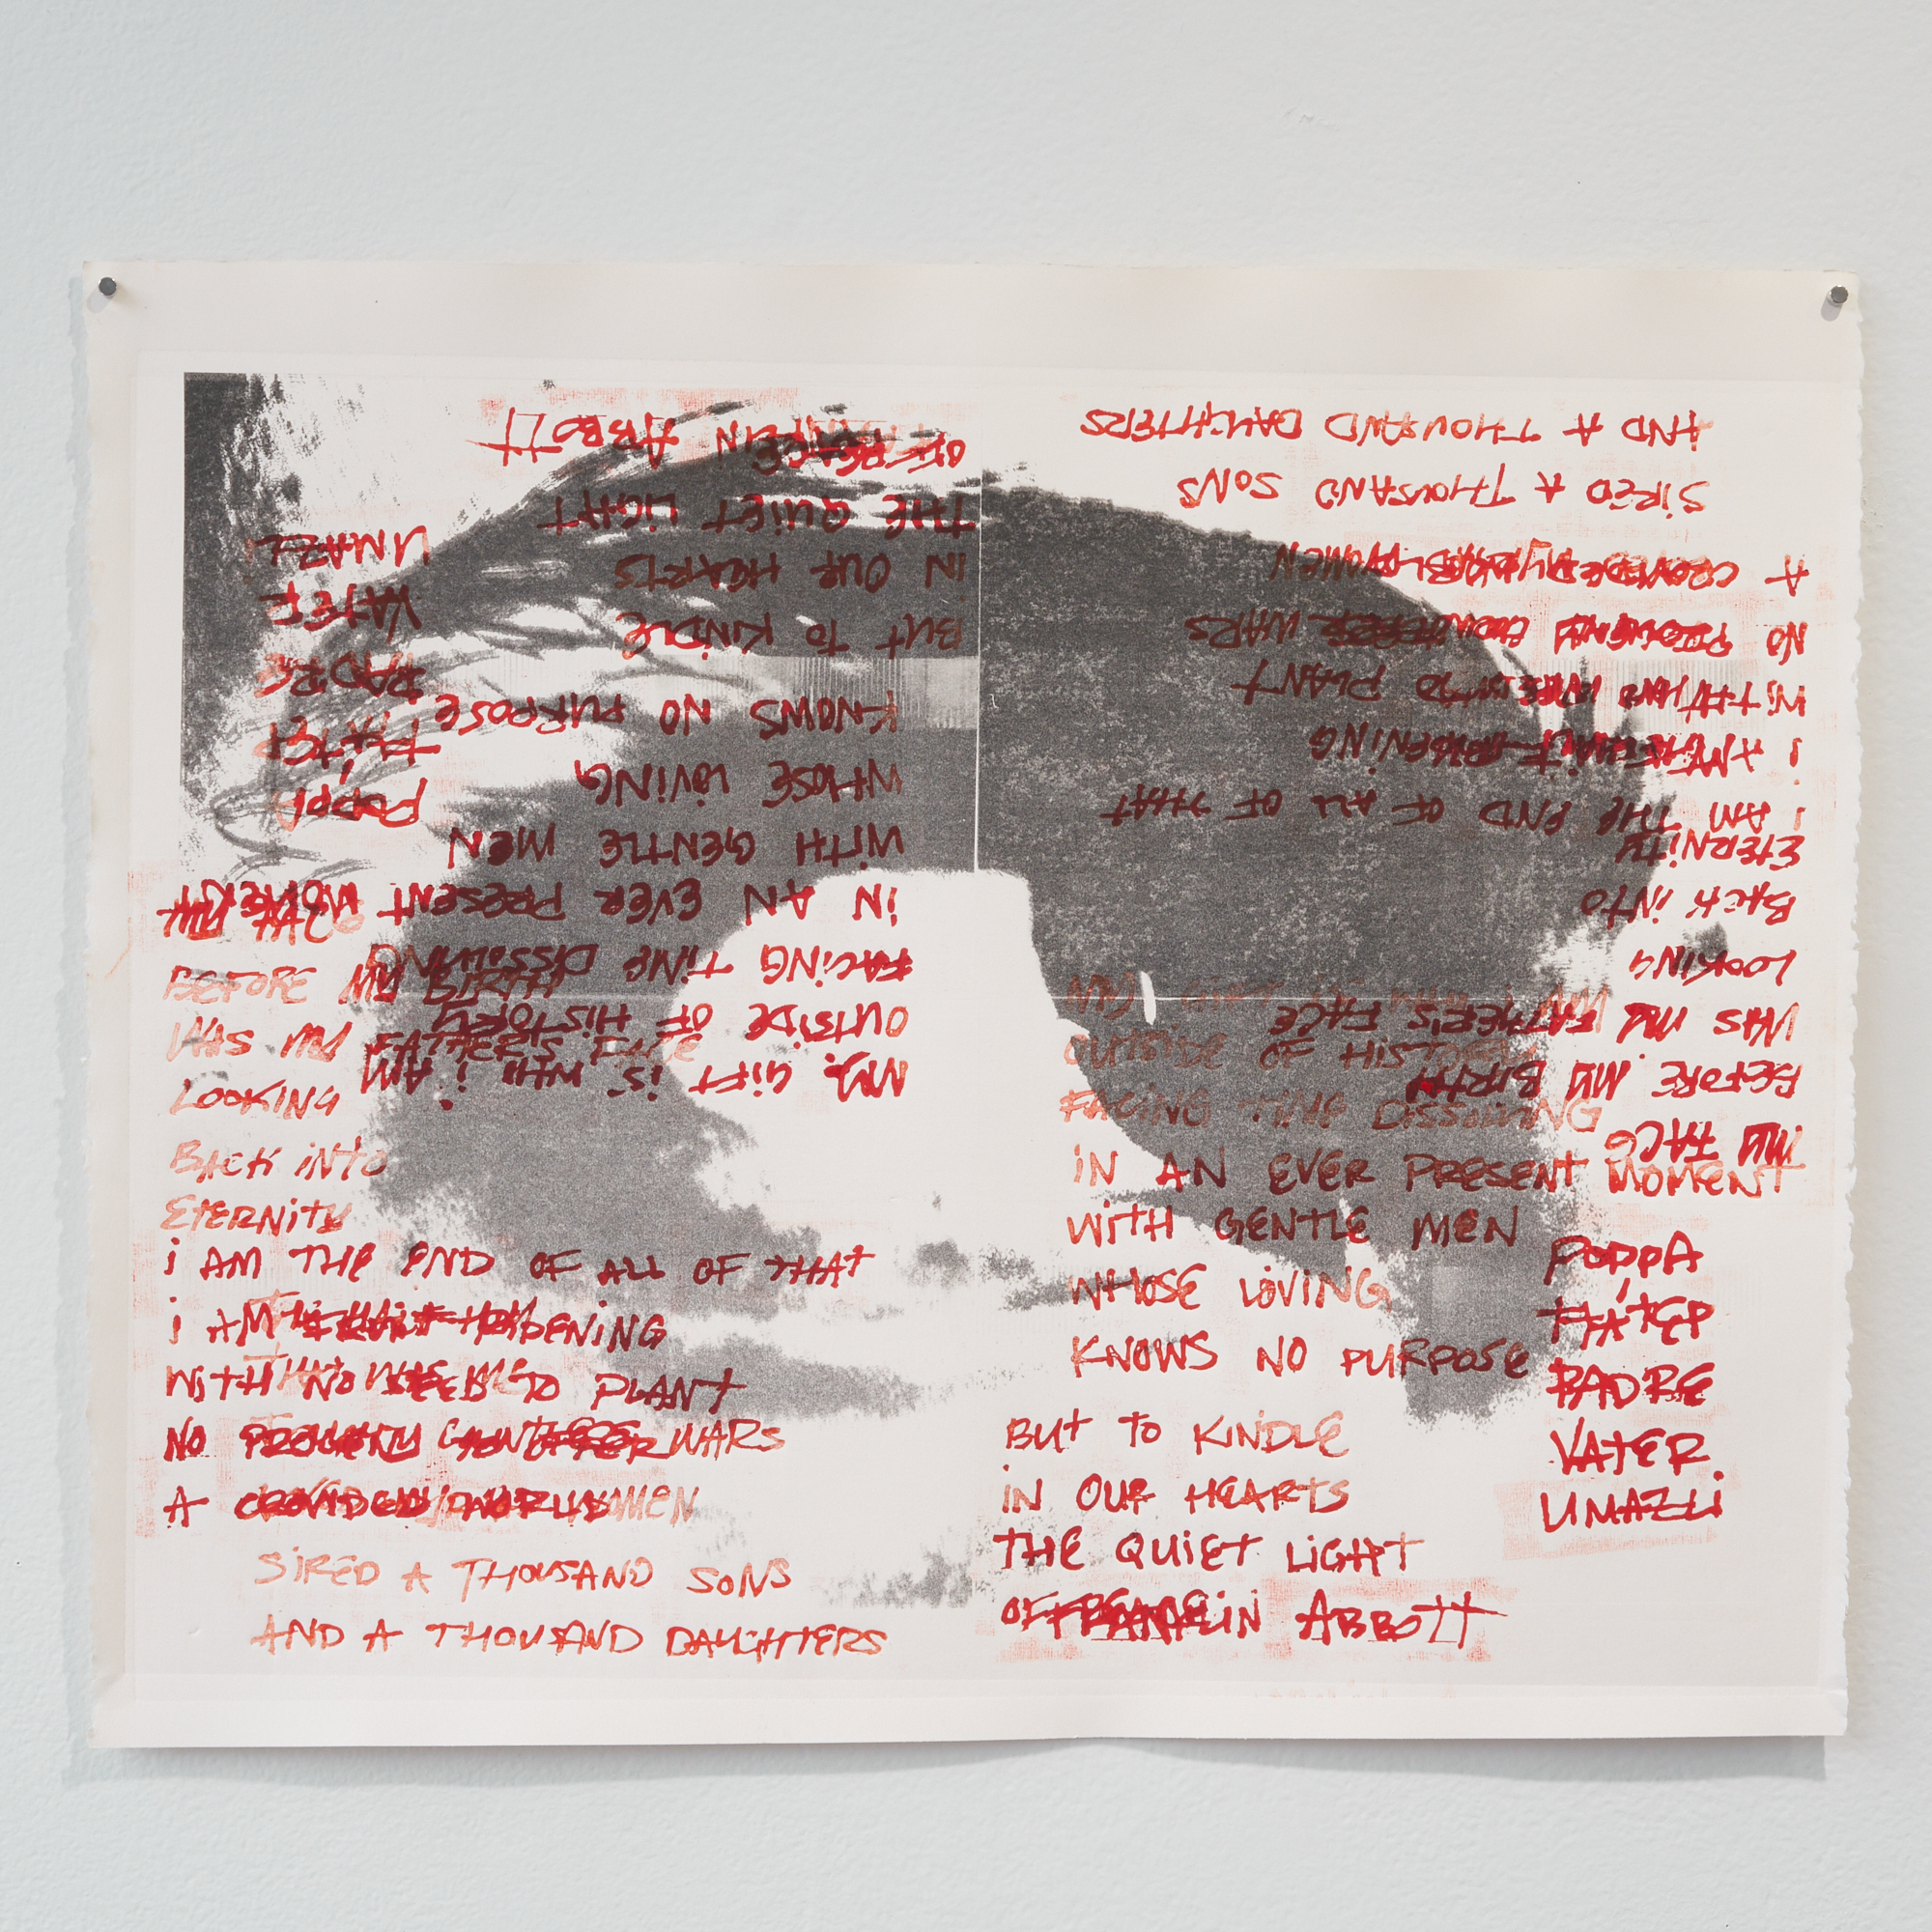 MY FACE
BEFORE MY BIRTH
WAS MY FATHER'S FACE
LOOKING
BACK iNTO
ETERNiTY
i AM THE END OF ALL OF THAT
i AM
WiTH NO SEED TO PLANT
NO PROGENY WARS
A CROWDED WORLD
SiRED A THOUSAND SONS
AND A THOUSAND DAUGHTERS
MY GiFT iS WHO i AM
OUTSiDE OF HiSTORY
FACiNG TiME DiSSOLViNG
iN AN EVER PRESENT MOMENT
WiTH GENTLE MEN
WHOSE LOViNG
KNOWS NO PURPOSE
BUT TO KiNDLE
iN OUR HEARTS
THE QUiET LiGHT
OF PEACE
FRANKLiN ABBOTT
POPPA
PADRE
VATER
UMAZLi
AND A THOUSAND DAUGHTERS
SiRED A THOUSAND SONS
A CROWDED WOMEN
NO PROGENY WARS
WiTH NO SEED TO PLANT
i AM
i AM THE END OF ALL OF THAT
ETERNiTY
BACK iNTO
LOOKiNG
WAS MY FATHER'S FACE
BEFORE MY BiRTH
MY FACE
FRANKLiN ABBOTT
OF PEACE
THE QUiET LiGHT
iN OUR HEARTS
BUT TO KiNDLE
KNOWS NO PURPOSE
WHOSE LOViNG
WiTH GENTLE MEN
iN AN EVER PRESENT MOMENT
FACiNG TiME DiSSOLViNG
OUTSiDE OF HiSTORY
MY GiFT iS WHO i AM
UMAZLi
VATER
PADRE
POPPA